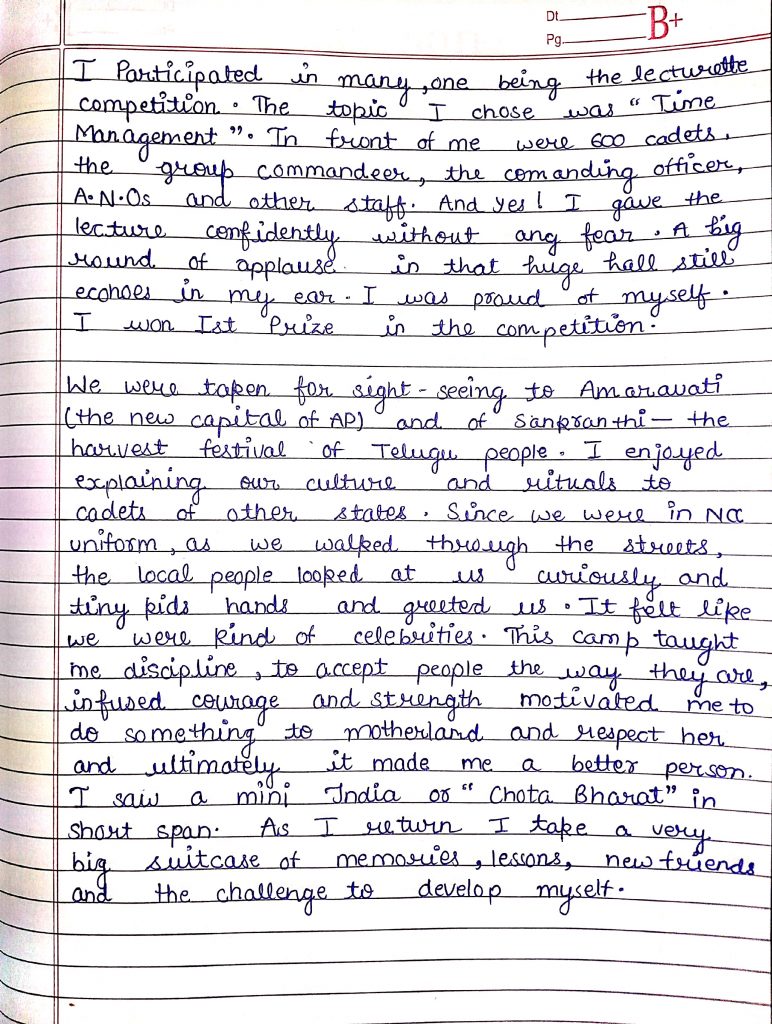 Dt.
Pg.
B+
I Participated in many, one being the lecturette
competition. The topic I chose was "Time
Management". In front of me were 600 cadets,
the group commandeer, the comanding officer,
A.N.Os and other staff. And yes! I gave the
lecture confidently without any fear. A big
round of applause in that huge hall still
ecohoes in my ear. I was proud of myself.
I won Ist Prize in the competition.
We were taken for sight-seeing to Amaravati
(the new capital of AP) and of Sankranthi— the
harvest festival of Telugu people. I enjoyed
explaining our culture and rituals to
cadets of other states. Since we were in NCC
uniform, as we walked through the streets,
the local people looked at us curiously and
tiny kids hands and greeted us. It felt like
we were kind of celebrities. This camp taught
me discipline, to accept people the way they are,
infused courage and strength motivated me to
do something to motherland and respect her
and ultimately it made me a better person.
I saw a mini India or "Chota Bharat" in
short span. As I return I take a very
big suitcase of memories, lessons, new friends
and the challenge to develop myself.